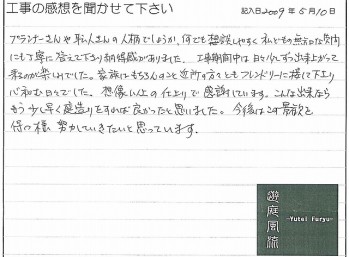 工事の感想を聞かせて下さい
記入日2009年5月10日
プランナーさんや職人さんの人柄でしょうか、何でも相談しやすく私どもの無知な質問
にも丁寧に答えて下さり納得感がありました。工事期間中は日々少しずつ出来上がって
来るのが楽しみでした。家族にもちろんのこと近所の方々ともフレンドリーに接して下さり
心和む日々でした。想像以上の仕上りで感謝しています。こんな出来なら
もう少し早く庭造りをすれば良かったと思いました。今後はこの景観を
保つ様 努力していきたいと思っています。
遊庭風流
-Yutei Furyu-